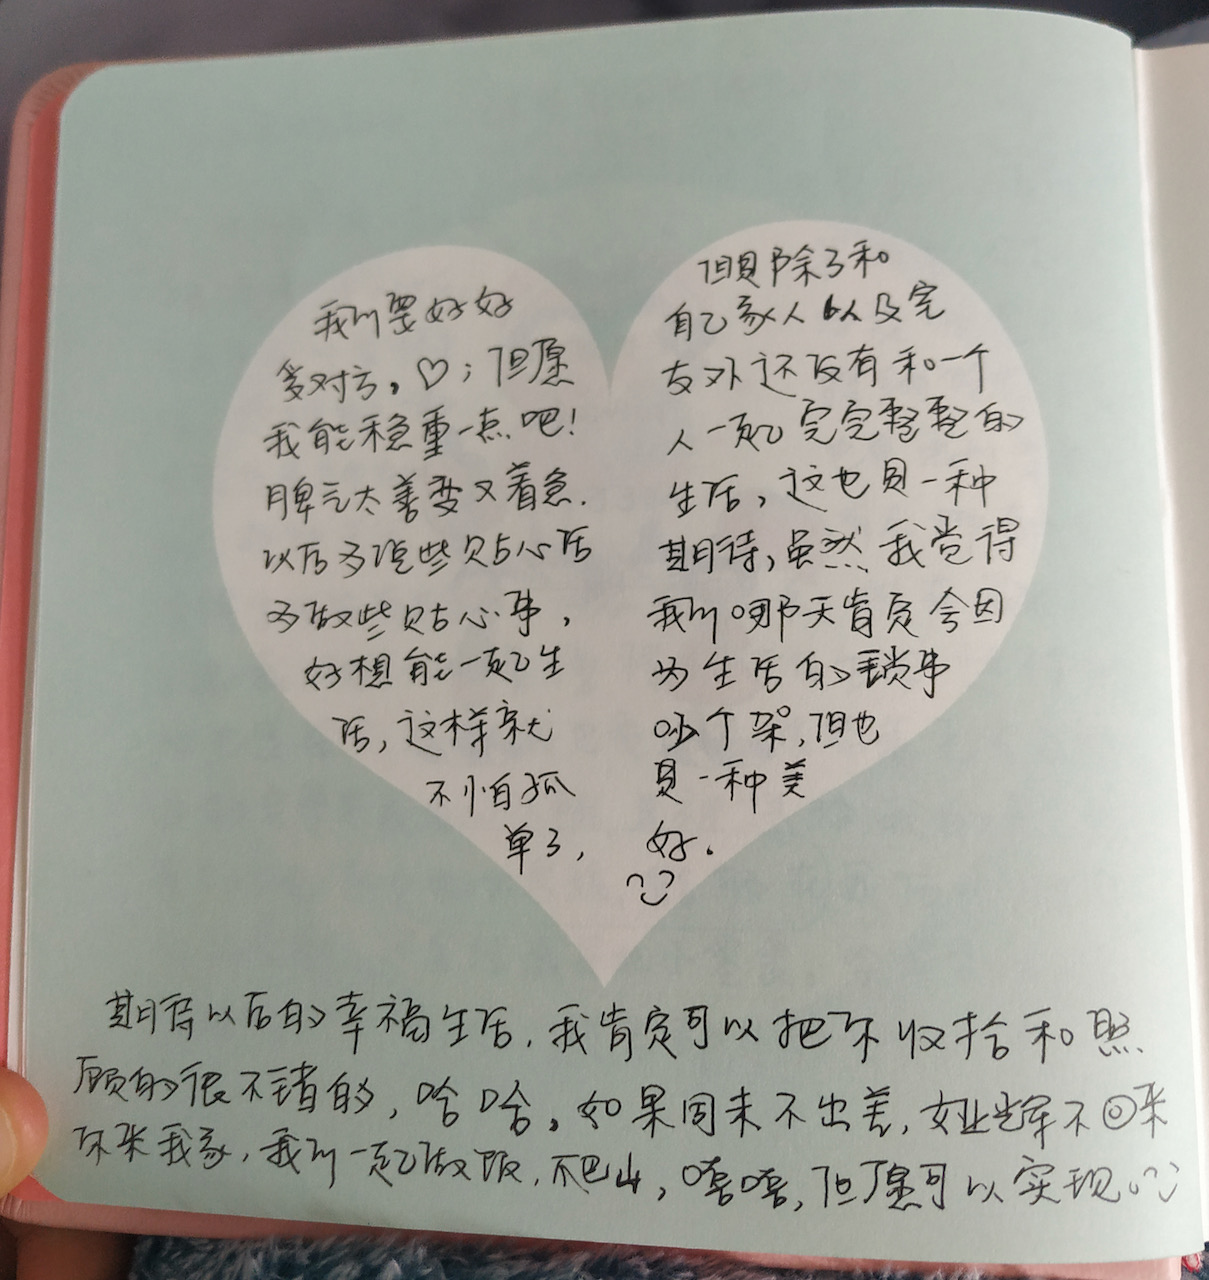 我们要好好
爱对方。♡；但愿
我能稳重一点吧！
脾气太善变又着急.
以后多说些贴心话
多做些贴心事，
好想能一起生
活，这样就
不怕孤
单了，
但是除了和
自己家人以及室
友外还没有和一个
人一起完完整整的
生活，这也是一种
期待，虽然我觉得
我们哪天肯定会因
为生活的琐事
吵个架，但也
是一种美
好.
期待以后的幸福生活，我肯定可以把你收拾和照
顾的很不错的，哈哈。如果周末不出差，女业辉不回来
你来我家，我们一起做饭，爬山，嘻嘻，但愿可以实现